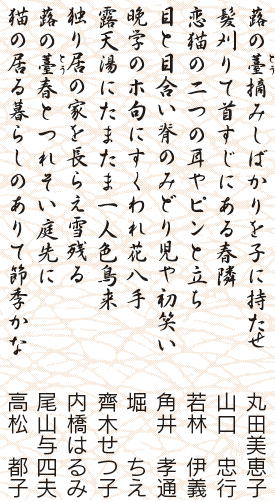 蕗の薹摘みしばかりを子に持たせ　丸田美恵子
髪刈りて首すじにある春隣　山口　忠行
恋猫の二つの耳やピンと立ち　若林　伊義
目と目合い脊のみどり児や初笑い　角井　孝通
晩学のホ句にすくわれ花八手　堀　ちえ
露天湯にたまたま一人色鳥来　齊木せつ子
独り居の家を長らえ雪残る　内橋はるみ
蕗の薹春とつれそい庭先に　尾山与四夫
猫の居る暮らしのありて節季かな　高松　都子